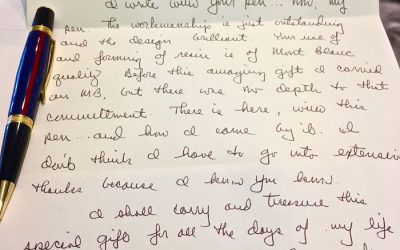 I write with your pen... now, my
pen. The workmanship is just outstanding
and the design brilliant. Your use of
and forming of resin is of Mont Blanc
quality. Before this amazing gift I carried
an MB, but there was no depth to that
committment. There is here, with this
pen... and how I came by it. I
don't think I have to go into extensive
thanks because I know you know.
I shall carry and treasure this
special gift for all the days of my life